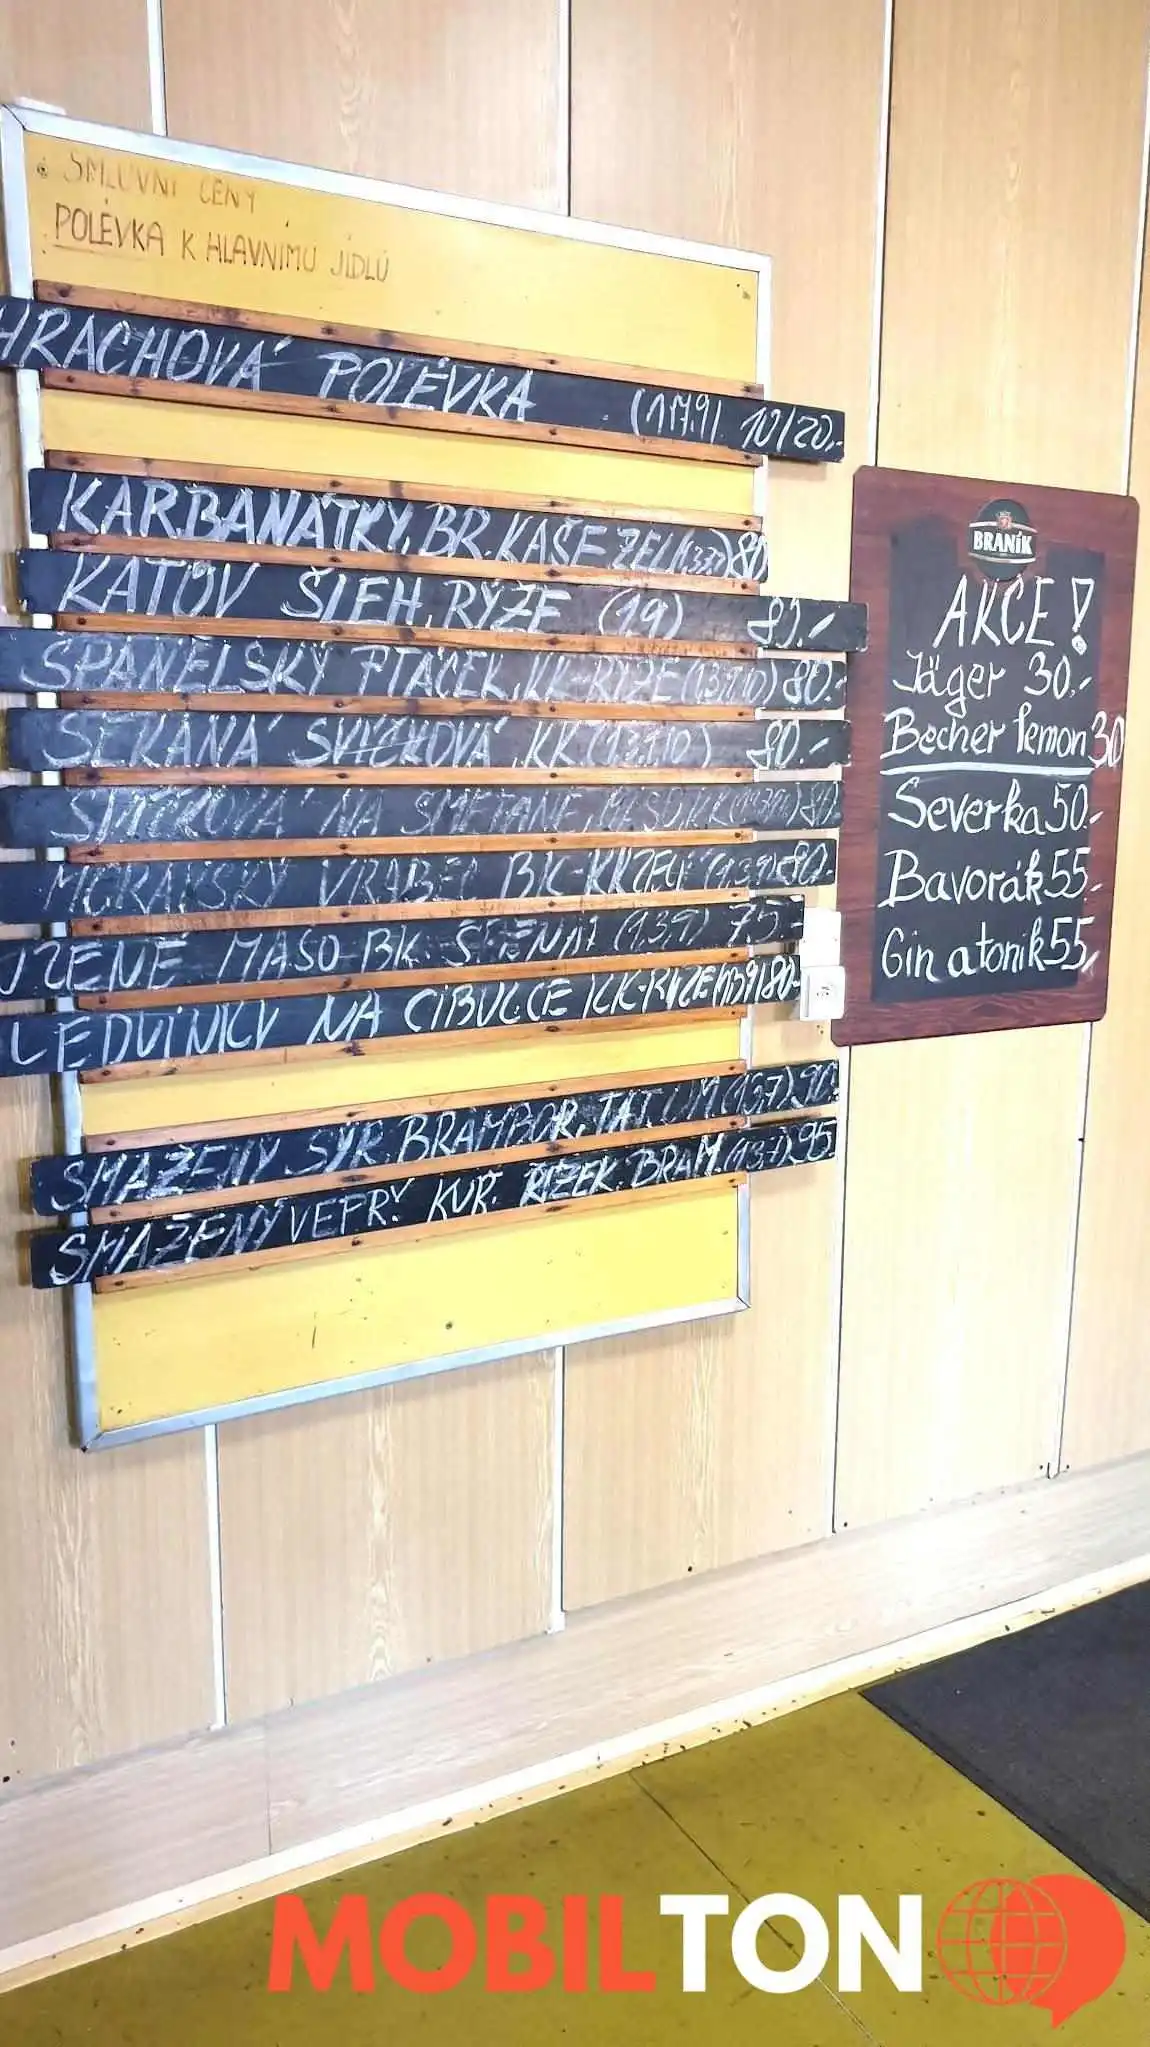 SMLUVNÍ CENY
POLÉVKA K HLAVNÍMU JÍDLU
HRACHOVÁ POLÉVKA (1,7,9) 10/20,-
KARBANÁTKY, BR. KAŠE ZELÍ (1,3,7) 80
KATŮV ŠLEH, RÝŽE (1,9) 80.-
ŠPANĚLSKÝ PTÁČEK, KK-RÝŽE (1,3,7,10) 80.-
SEKANÁ SVÍČKOVÁ, KK (1,3,7,10) 80.-
SVÍČKOVÁ NA SMETANĚ, MASO, KK
MORAVSKÝ VRABEC BK-KK ZELÍ (1,3,9) 80.-
UZENÉ MASO-BK. ŠPENÁT (1,3,9) 75.-
LEDVINKY NA CIBULCE KK-RÝŽE (1,3,9) 80.-
SMAŽENÝ SÝR, BRAMBOR, TAT. OM. (1,3,7) 90.-
SMAŽENÝ VEPŘ. KUŘ. ŘÍZEK. BRAM. (1,3,7) 95
BRANÍK
AKCE!
Jäger 30,-
Becher lemon 30
Severka 50.-
Bavorák 55.-
Gin a tonik 55,-
MOBILTON